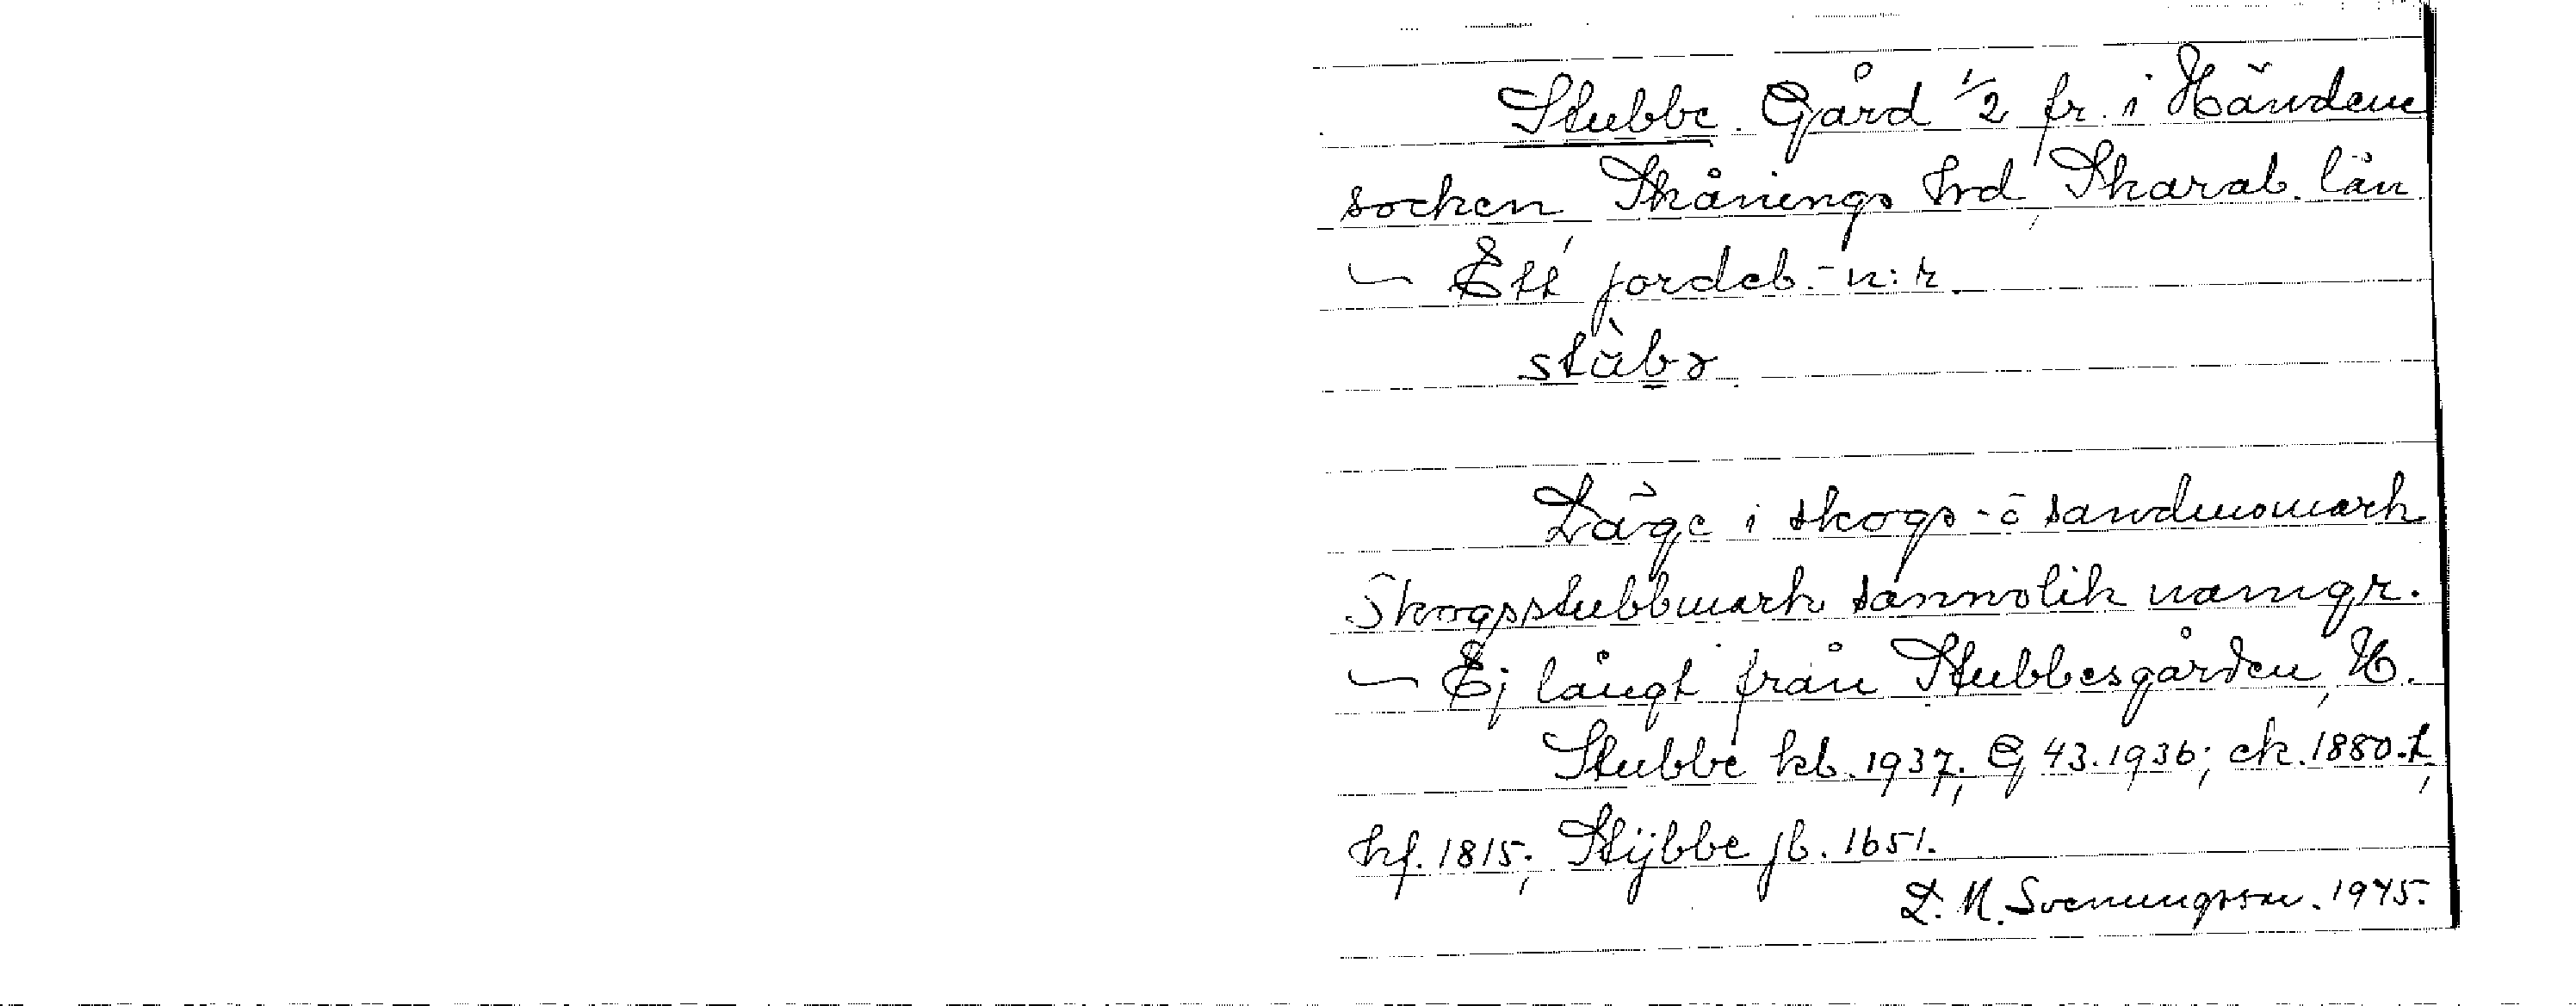 Stubbe. Gård 1/2 fr. i Händene
socken, Skånings hrd, Skarab. län
— Ett jordeb.-n:r.
Läge i skogs- o sandmomark
Skogsstubbmark sannolik namngr.
— Ej långt från Stubbesgården, H.
Stubbe kb. 1937; G 43. 1936; ek. 1880.t,
hf. 1815; Stÿbbe jb. 1651.
L. M. Svenungsson. 1945.